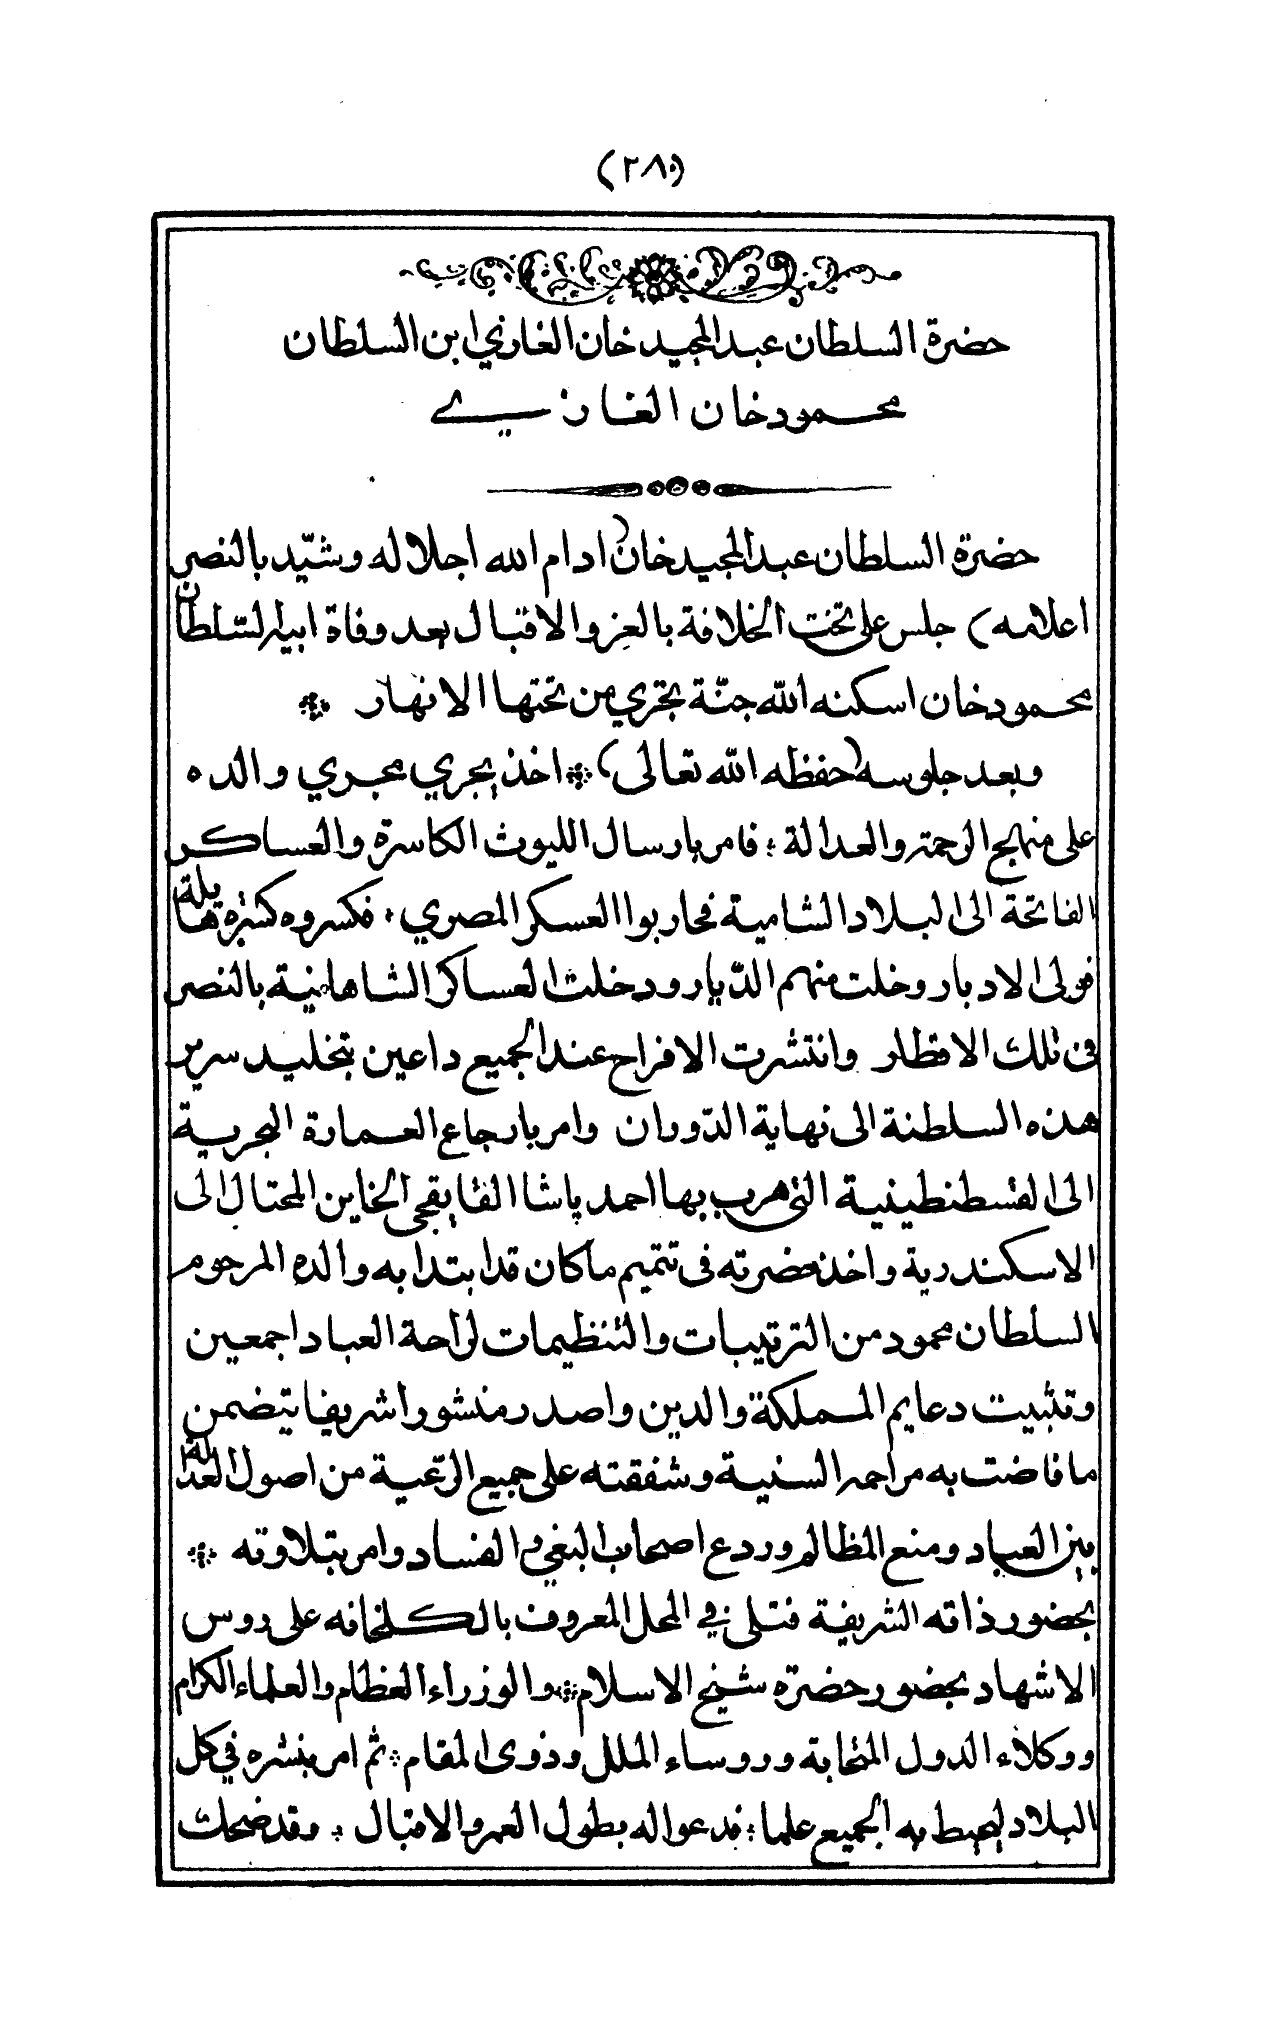 (٢٨٠)
حضرة السلطان عبد المجيد خان الغازي ابن السلطان
محمود خان الغازي
حضرة السلطان عبد المجيد خان (ادام الله اجلاله وشيّد بالنصر
اعلامه) جلس على تخت الخلافة بالعز والاقبال بعد وفاة ابيه السّلطان
محمود خان اسكنه الله جنّة تجري من تحتها الانهار *
وبعد جلوسه (حفظه الله تعالى) * اخذ يجري مجري والده
على منهاج الرحمة والعدالة ؛ فامر بارسال الليوث الكاسرة والعساكر
الفاتحة الى البلاد الشامية فحاربوا العسكر المصري ؛ فكسروه كسرة هايلة
فولى الادبار وخلت منهم الدّيار ودخلت العساكر الشاهانية بالنصر
فى تلك الاقطار وانتشرت الافراح عند الجميع داعين بتخليد سرير
هذه السلطنة الى نهاية الدّوران وامر بارجاع العمارة البحرية
الى القسطنطينية التى هرب بها احمد پاشا القايقجى الخاين المحتال الى
الاسكندرية واخذ حضرته فى تتميم ما كان قد ابتدا به والده المرحوم
السلطان محمود من الترتيبات والتنظيمات لراحة العباد اجمعين
وتثبيت دعايم المملكة والدين واصدر منشورا شريفا يتضمن
ما فاضت به مراحمه السنية وشفقته على جميع الرّعية من اصول العدالة
بين العباد ومنع المظالم وردع اصحاب البغي والفساد وامر بتلاوته *
بحضور ذاته الشريفة فتلى في المحل المعروف بالكلخانه على روس
الاشهاد بحضور حضرة شيخ الاسلام * والوزراء العظام والعلماء الكرام
ووكلاء الدول المتحابة وروساء الملل وذوى المقام * ثم امر بنشره في كل
البلاد ليحيط به الجميع علما ؛ فدعوا له بطول العمر والاقبال ؛ وقد ضحكت